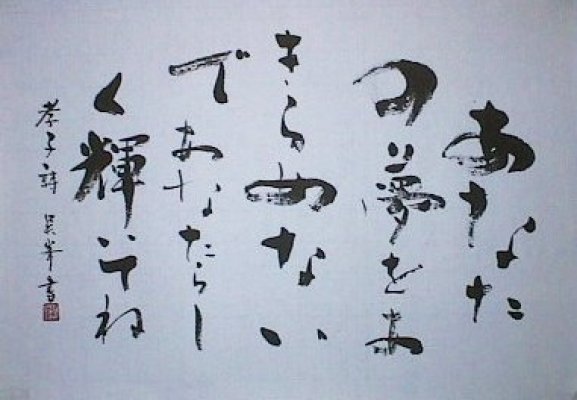 あなた
の夢をあ
きらめない
であなたらし
く輝いてね
孝子詩 吴峯書